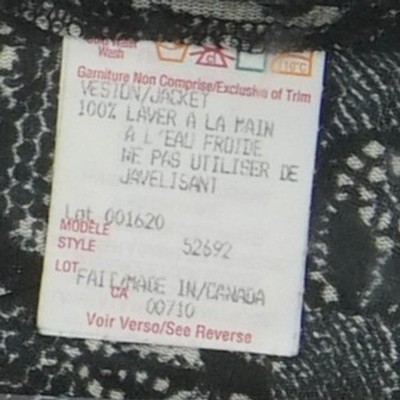 Cold Water
Wash
110°C
Garniture Non Comprise/Exclusive of Trim
VESTON/JACKET
100% LAVER A LA MAIN
A L'EAU FROIDE
NE PAS UTILISER DE
JAVELISANT
Lot 001620
MODÈLE
STYLE 52692
LOT
FAIT/MADE IN/CANADA
CA 00710
Voir Verso/See Reverse